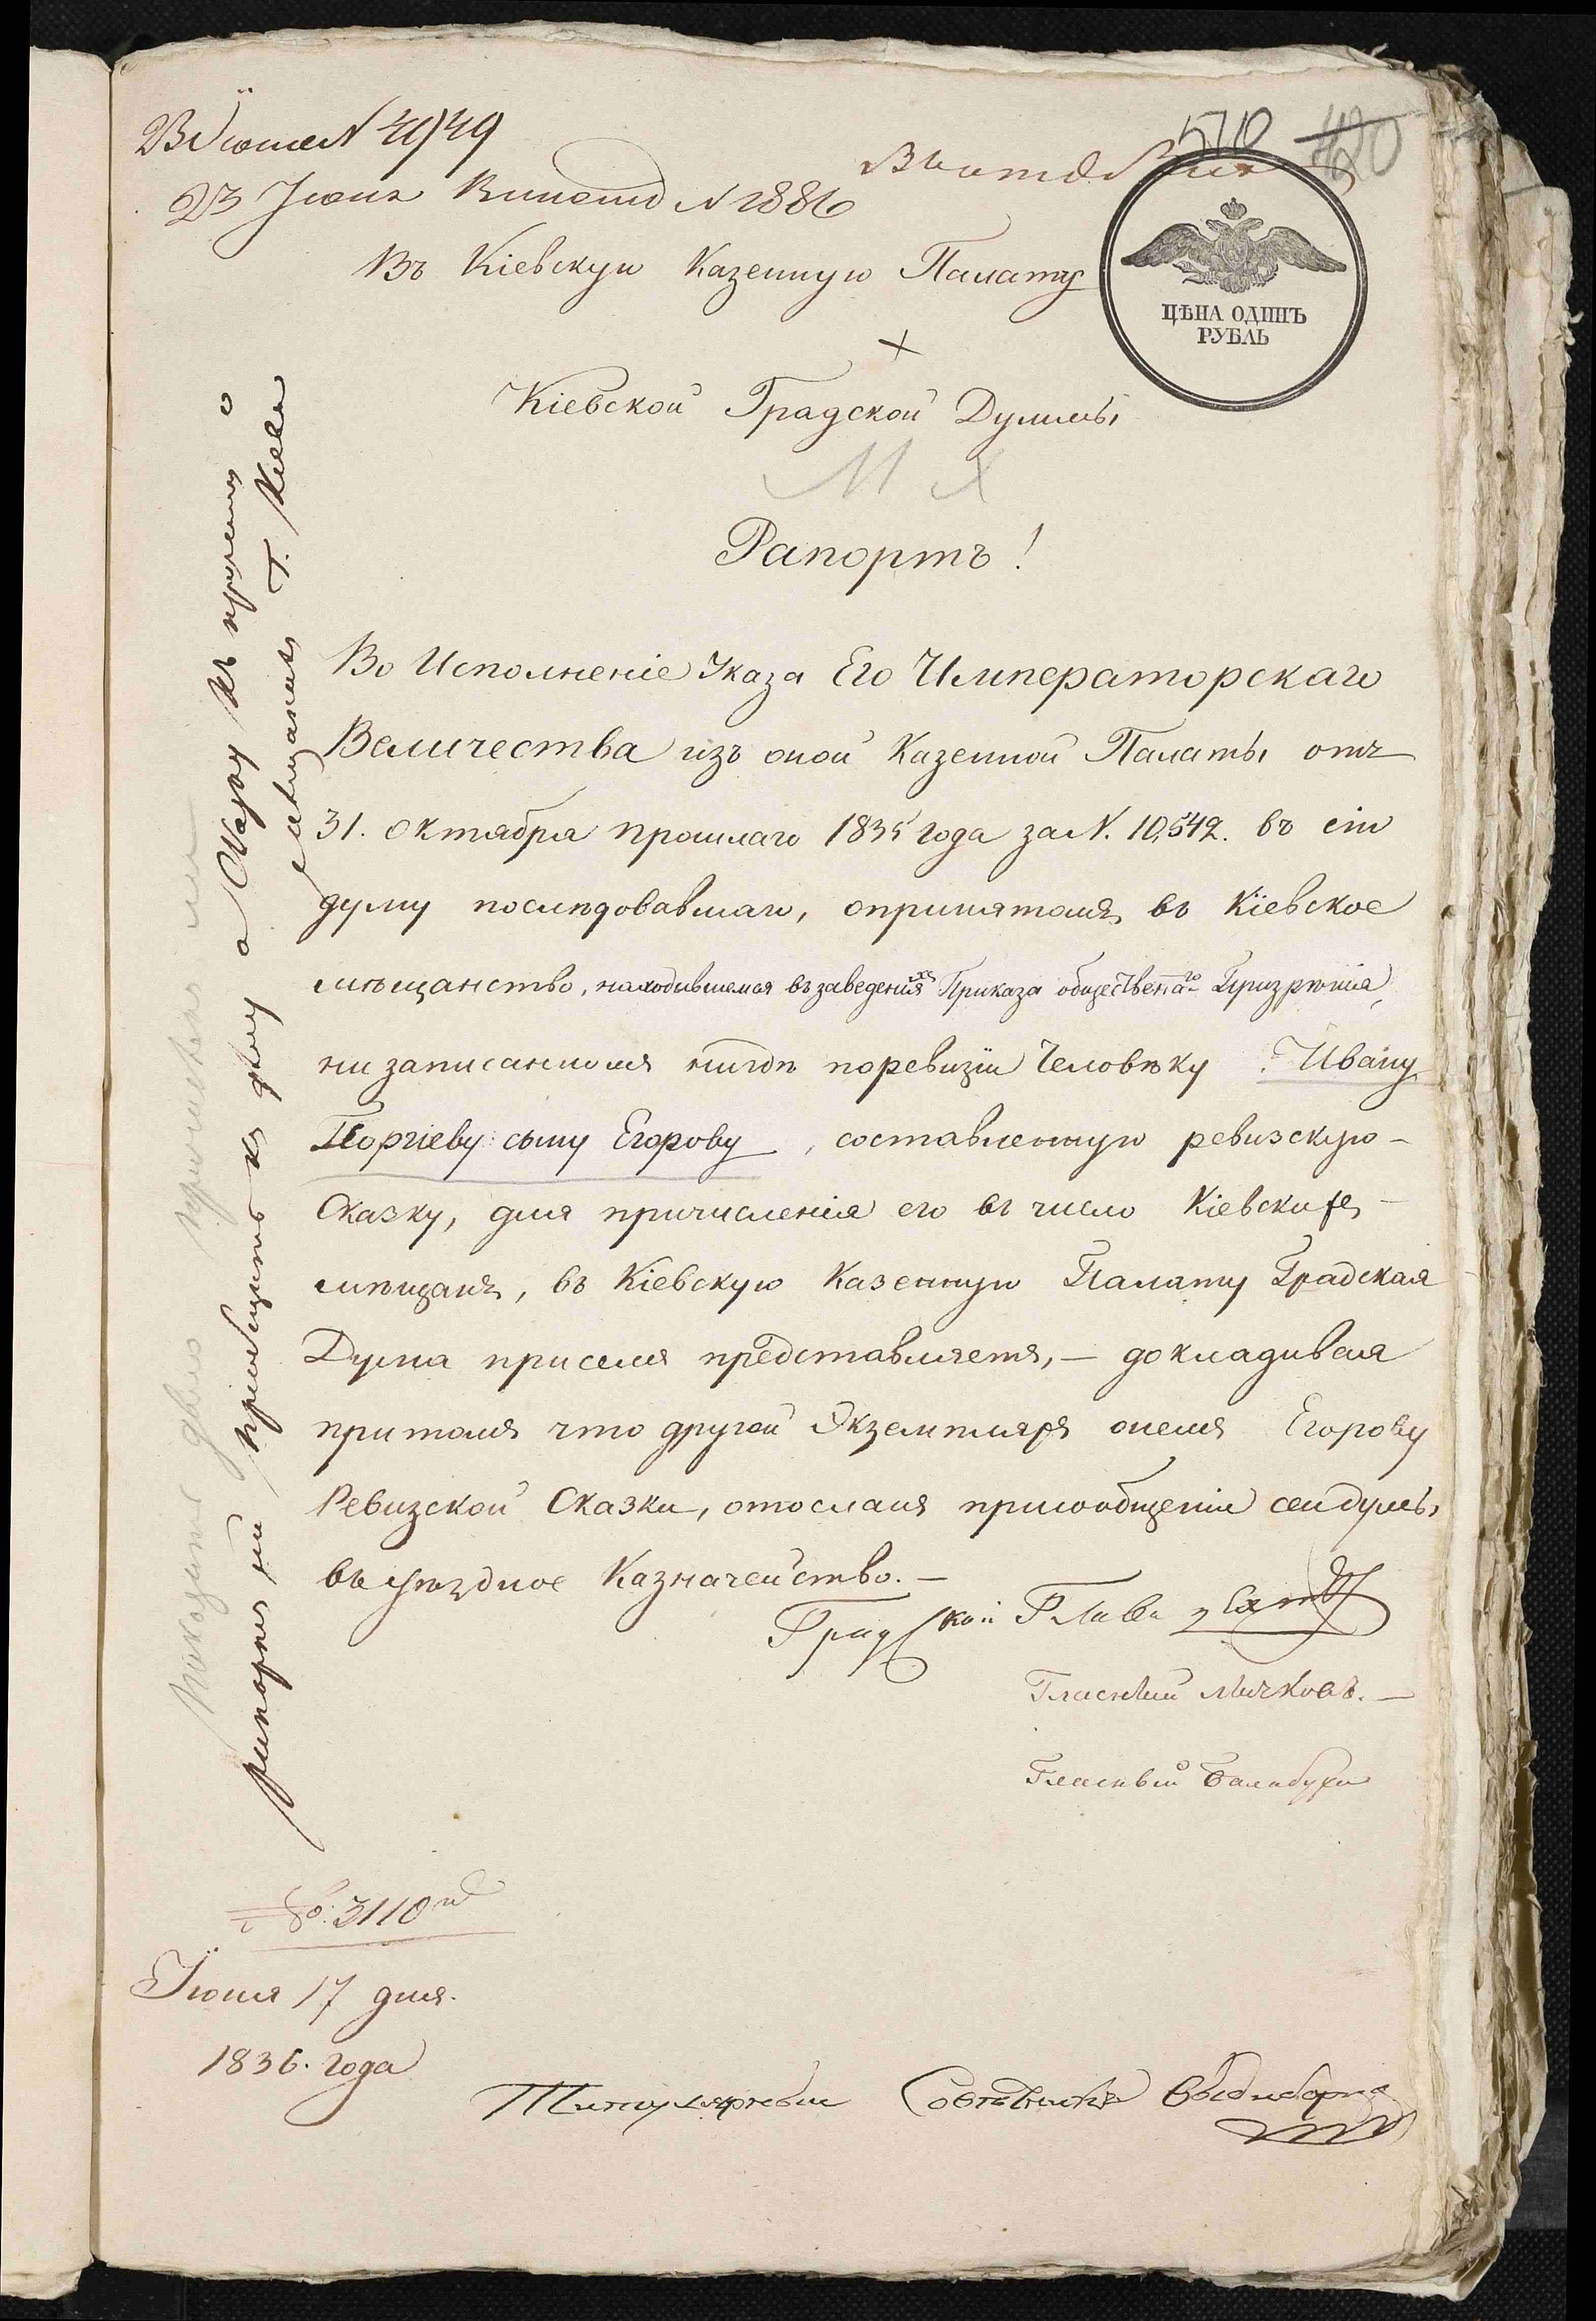 570 420
23 Іюня
№ 1886
Въ Кіевскую Казенную Палату
ЦѢНА ОДИНЪ
РУБЛЬ
Кіевской Градской Думмы
Рапортъ!
Во Исполненіе Указа Его Императорскаго
Величества изъ оной Казенной Палаты отъ
31. Октября прошлаго 1835 года за N. 10,542. въ сію
думу послѣдовавшаго, опринятомъ въ Кіевское
мѣщанство, находившемся въ заведеніяхъ Приказа общественаго Призрѣнія,
ни записанномъ нигдѣ поревизіи Человѣку Ивану
Георгіеву сыну Егорову, составленную ревизскую-
Сказку, для причисленія его въ число Кіевскихъ-
мѣщанъ, въ Кіевскую Казенную Палату Градская
Дума присемъ представляетъ,- докладывая
притомъ что другой Экземпляръ онемъ Егорову
Ревизской Сказки, отосланъ присообщеніи сей думы,
въ уѣздное Казначейство.-
Градской Глава
Гласный Лычковъ.-
Гласный Балабуха
рапортъ сей пріобщить къ дѣлу а Сказку къ
мѣщанъ Г. Кіева
№: 3110й
Іюня 17 дня.
1836. года
Титулярный Совѣтникъ